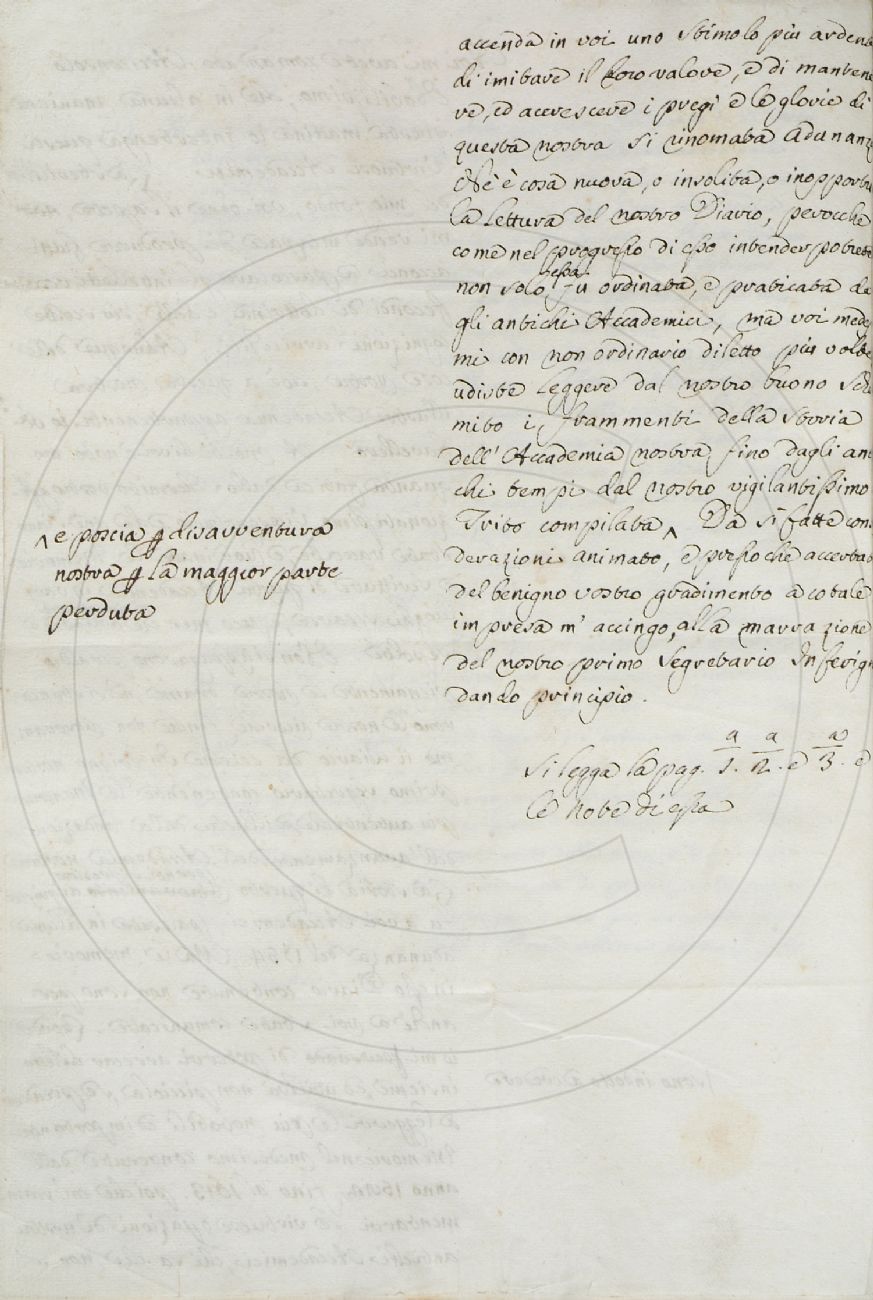 accenda in voi uno stimolo più ardente
di imitare il loro valore, e di mantene
re, ed accrescere i pregi e le glorie di
questa nostra sì rinomata Adunanz
Nè è cosa nuova, o insolita, o inopportu
la lettura del nostro Diario, perocchè
come nel progresso di esso intender potrete
non solo essa fu ordinata, e praticata da
gli antichi Accademici, ma voi mede
mi con non ordinario diletto più volte
udiste leggere dal nostro buono Schi
mito i frammenti della storia
dell' Accademia nostra fino dagli an
chi tempi dal nostro vigilantissimo
Trito compilata ^ Da sì fatte con
^ e poscia ꝑ disavventura
nostra ꝑ la maggior parte
perduta
derazioni animato, e pressochè accertat
del benigno vostro gradimento a cotale
impresa m' accingo, alla narrazione
del nostro primo Segretario Inferign
dando principio.
Si legga la pag. a/1. a/2. e a/3. e
le note di essa